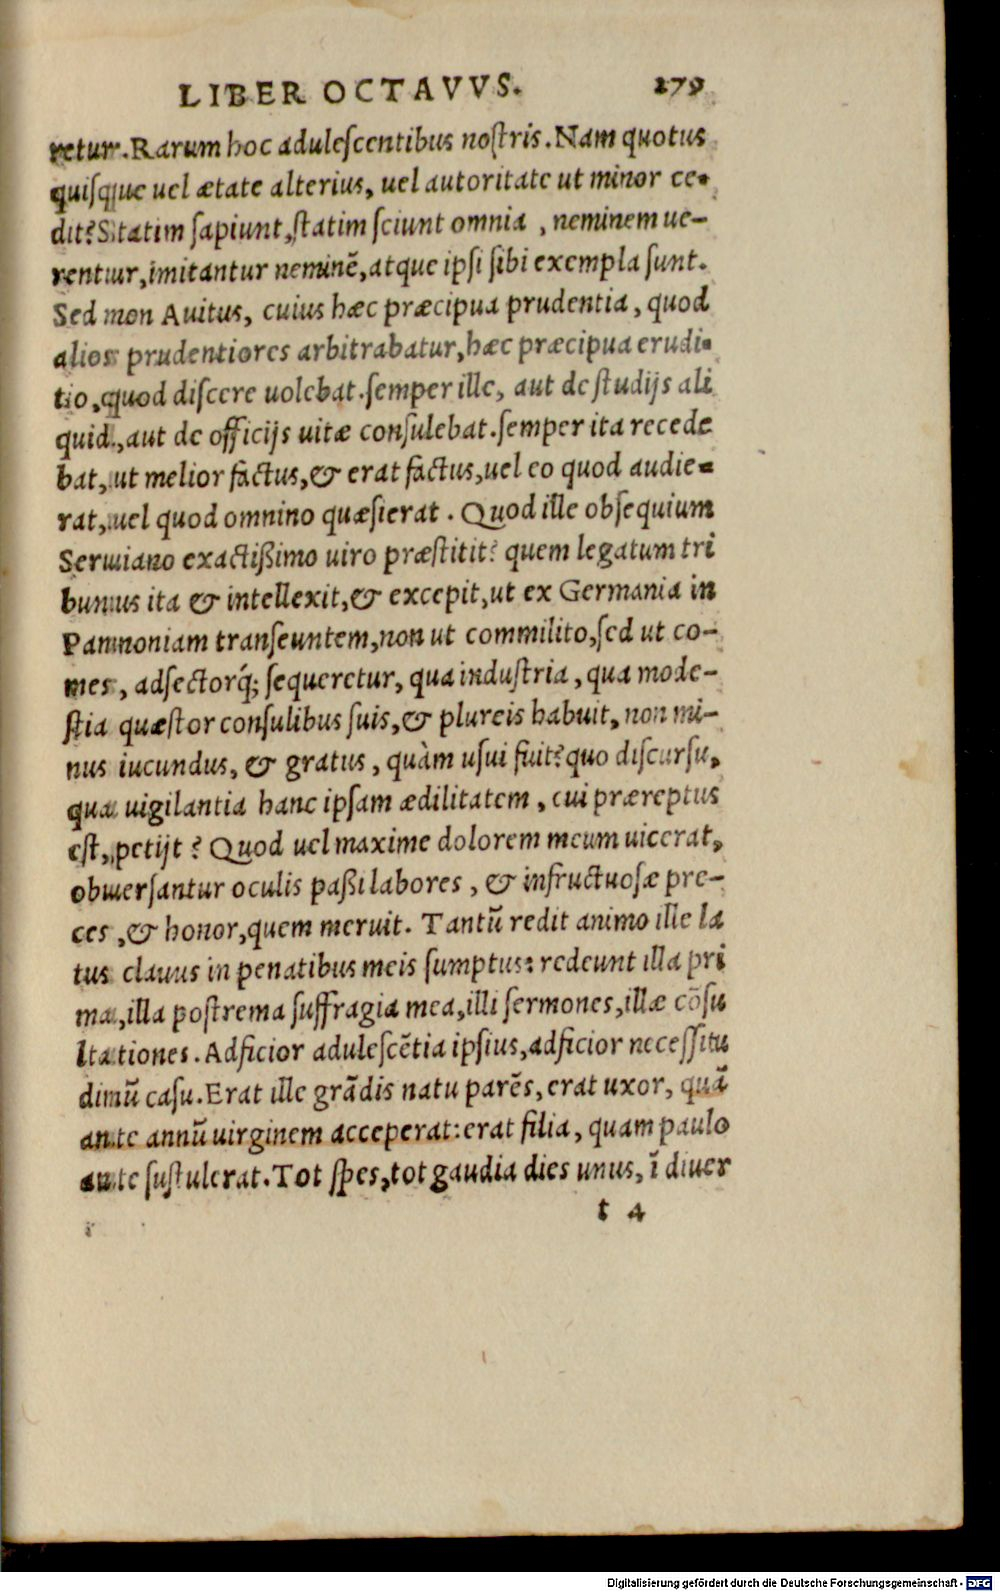 LIBER OCTAVVS. 279
retur. Rarum hoc adulescentibus nostris. Nam quotus
quisque uel ætate alterius, uel autoritate ut minor ce-
dit? Statim sapiunt, statim sciunt omnia, neminem ue-
rentur, imitantur neminē, atque ipsi sibi exempla sunt.
Sed non Auitus, cuius hæc præcipua prudentia, quod
alios prudentiores arbitrabatur, hæc præcipua erudi-
tio, quod discere uolebat. semper ille, aut de studijs ali
quid, aut de officijs uitæ consulebat. semper ita recede
bat, ut melior factus, & erat factus, uel eo quod audie-
rat, uel quod omnino quæsierat. Quod ille obsequium
Seruiano exactißimo uiro præstitit? quem legatum tri
bunus ita & intellexit, & excepit, ut ex Germania in
Pannoniam transeuntem, non ut commilito, sed ut co-
mes, adsectorq́; sequeretur, qua industria, qua mode-
stia quæstor consulibus suis, & plureis habuit, non mi-
nus iucundus, & gratus, quàm usui fuit? quo discursu,
qua uigilantia hanc ipsam ædilitatem, cui præreptus
est, petijt? Quod uel maxime dolorem meum uicerat,
obuersantur oculis paßi labores, & infructuosæ pre-
ces, & honor, quem meruit. Tantū redit animo ille la
tus clauus in penatibus meis sumptus: redeunt illa pri
ma, illa postrema suffragia mea, illi sermones, illæ cōsu
ltationes. Adficior adulescētia ipsius, adficior necessitu
dinū casu. Erat ille grādis natu parēs, erat uxor, quā
ante annū uirginem acceperat: erat filia, quam paulo
ante sustulerat. Tot spes, tot gaudia dies unus, ī diuer
t 4
Digitalisierung gefördert durch die Deutsche Forschungsgemeinschaft - DFG